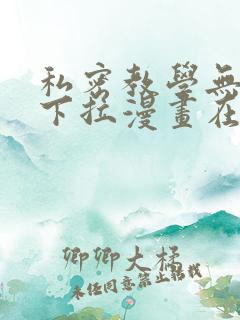 私密教學無
下拉漫畫在
卿卿大橘
未经同意禁止转载